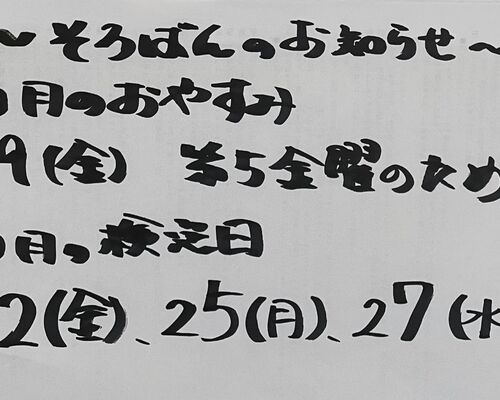 ～そろばんのお知らせ～
月のおやすみ
9(金) 第5金曜のため
月の検定日
2(金)、25(月)、27(水